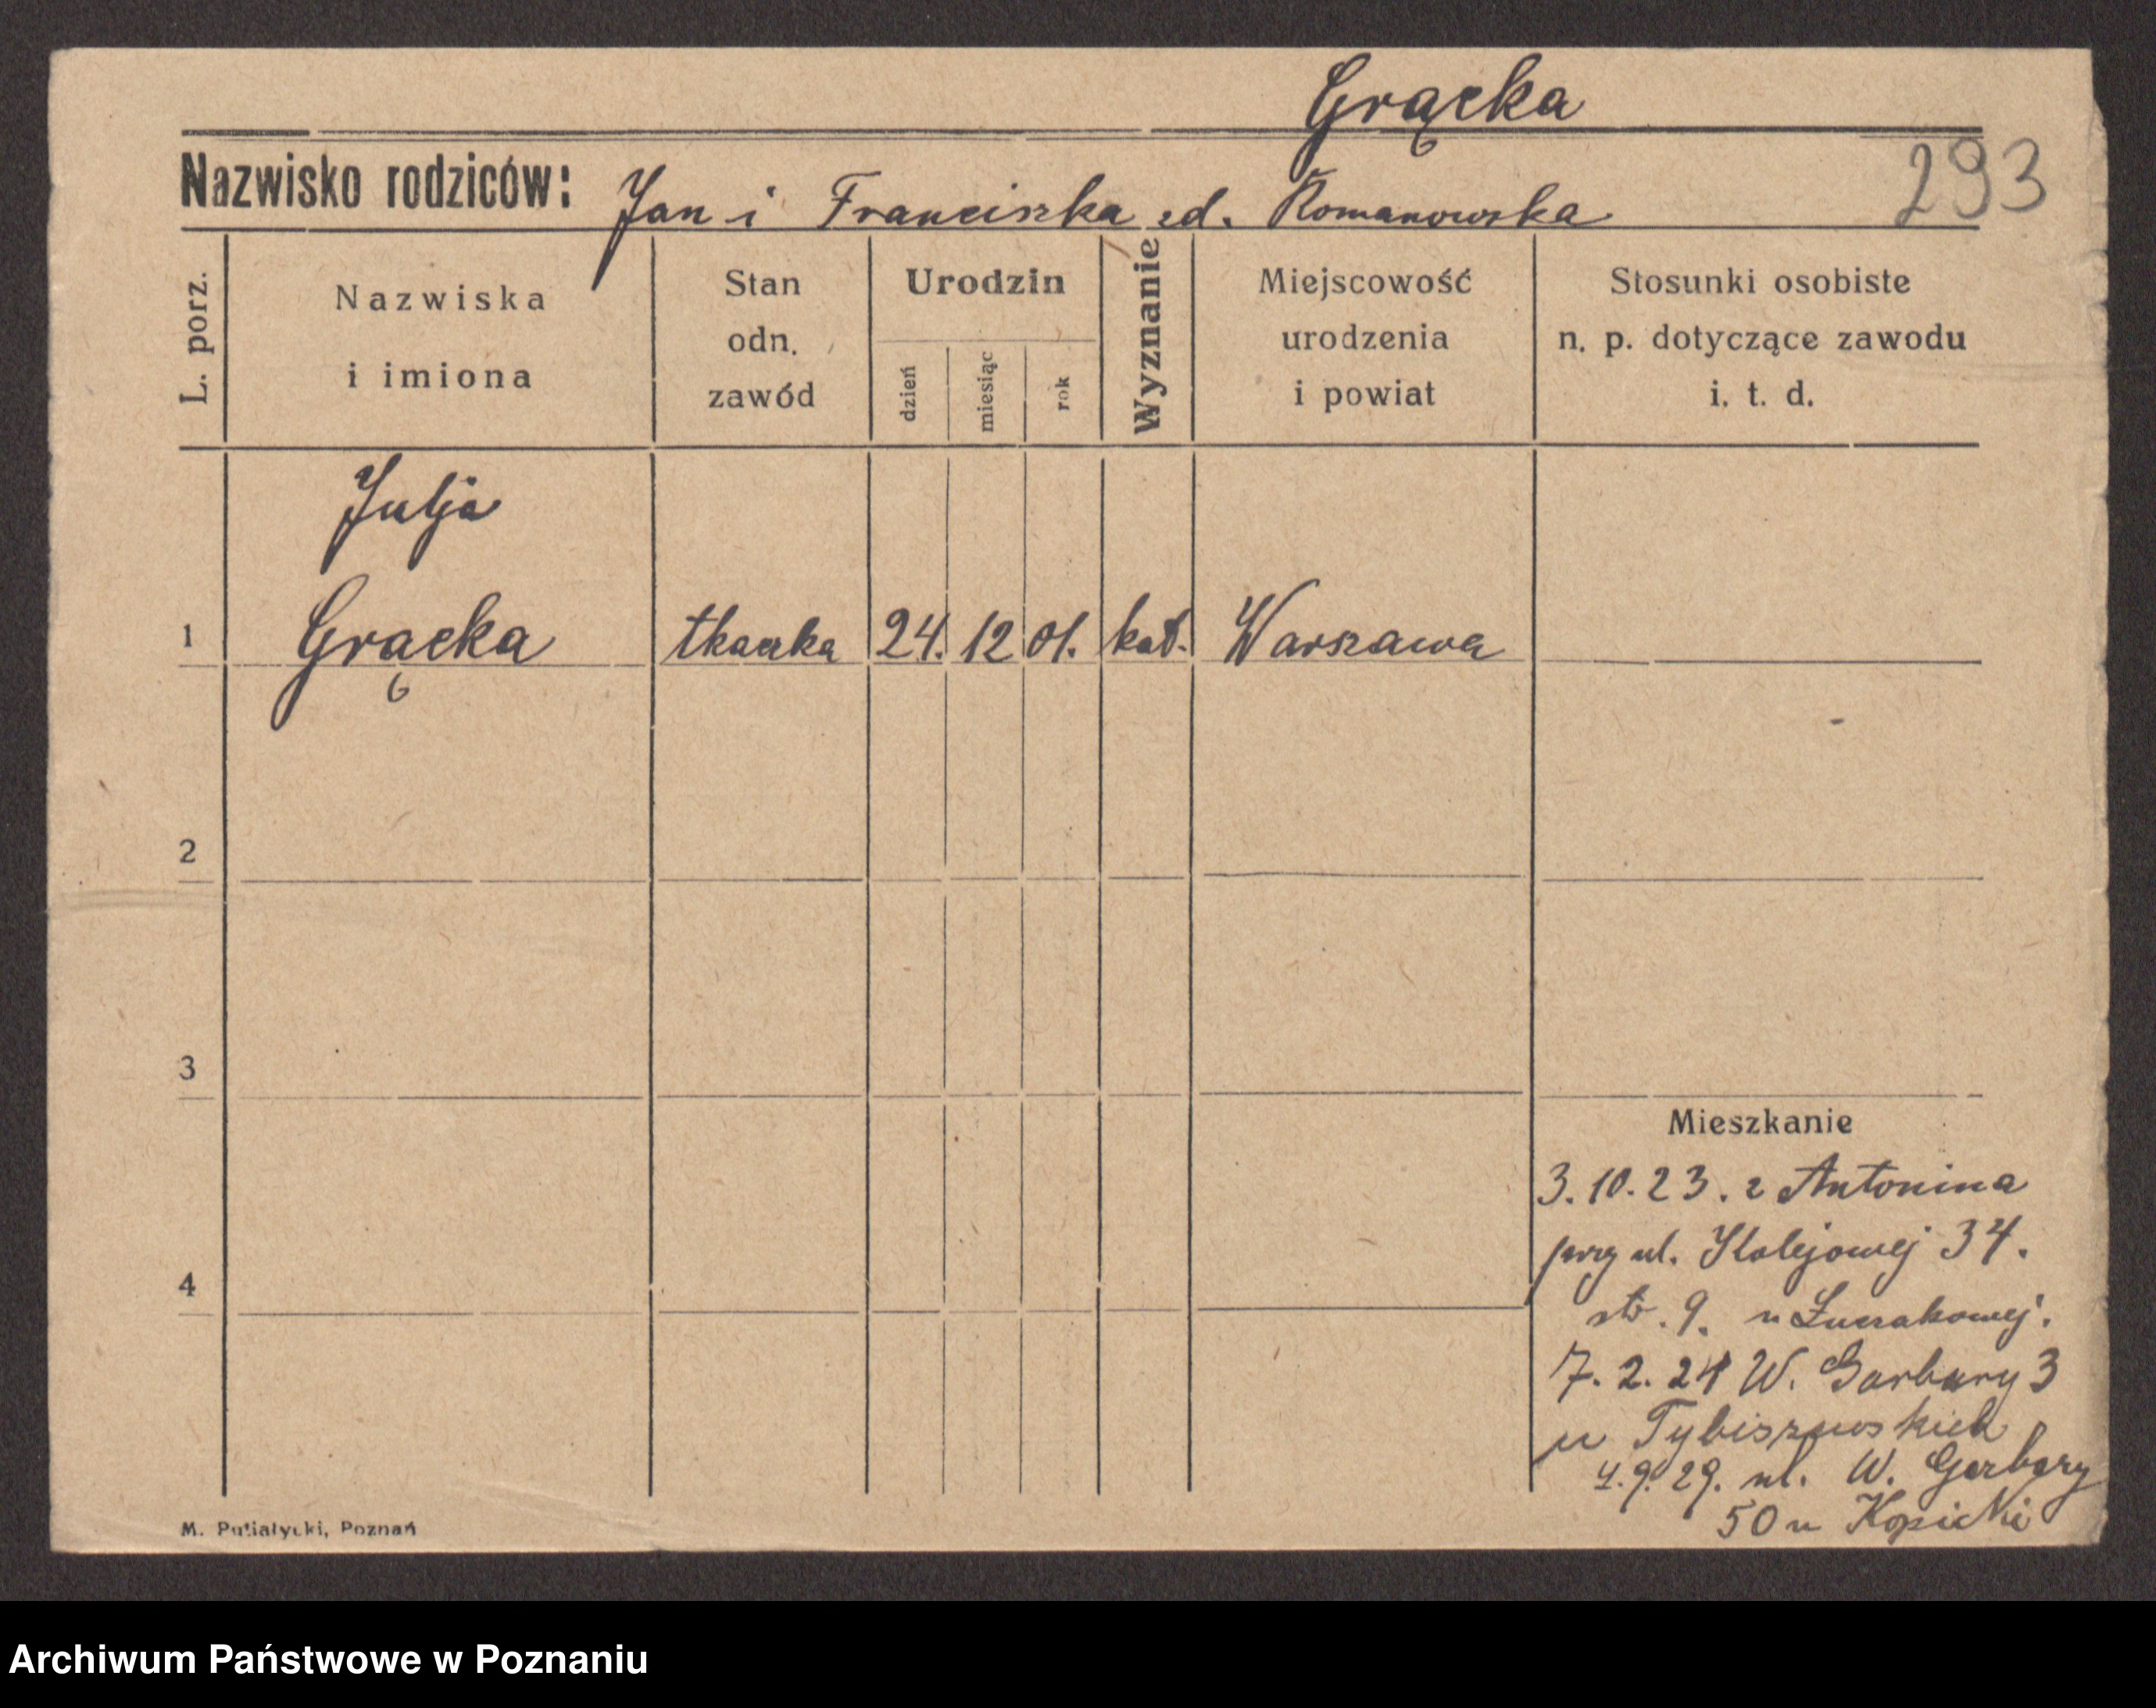 Grącka
Nazwisko rodziców: Jan i Franciszka zd. Romanowska
293
L. porz.
Nazwiska
i imiona
Stan
odn.
zawód
Urodzin
dzień
miesiąc
rok
Wyznanie
Miejscowość
urodzenia
i powiat
Stosunki osobiste
n. p. dotyczące zawodu
i. t. d.
Julja
1 Grącka tkaczka 24. 12 01. kat. Warszawa
2
3
4
Mieszkanie
3. 10. 23. z Antonina
przy ul. Kolejowej 34.
str. 9. u Łuczakowej.
7. 2. 24 W. Garbary 3
u Tybiszewskich
4. 9. 29. ul. W. Garbary
50 u
M. Putiatycki, Poznań
Archiwum Państwowe w Poznaniu